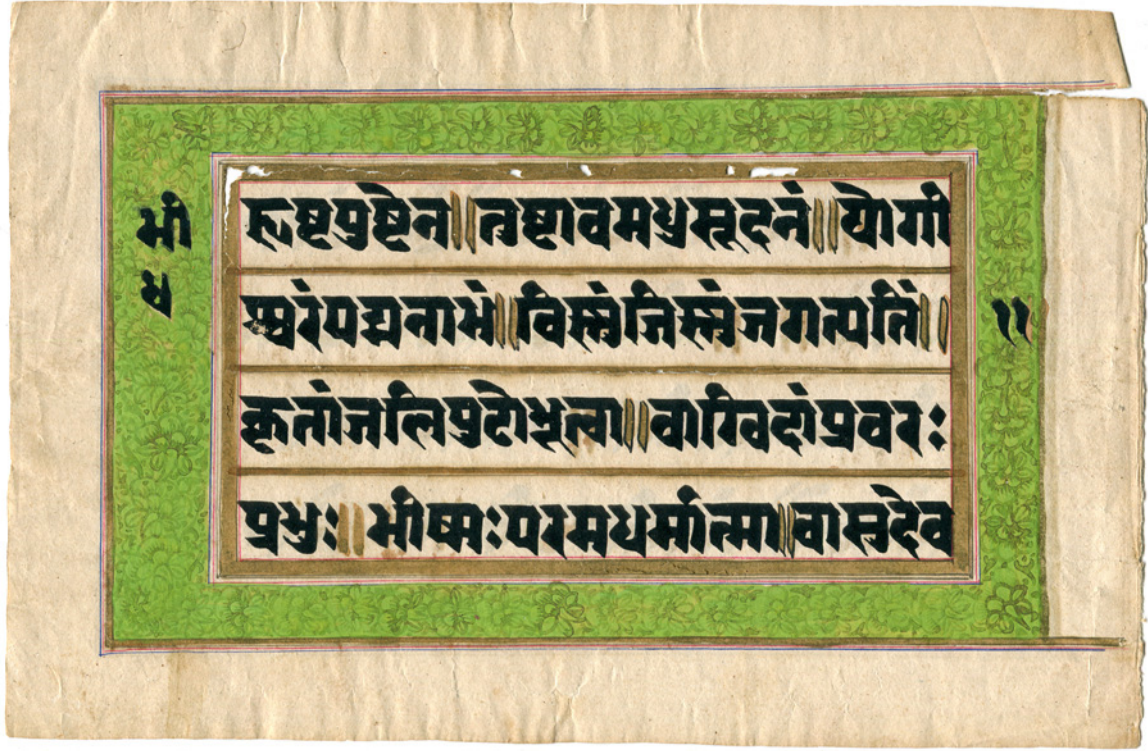 भीं
हृष्टपुष्टेन॥तुष्टावमधुसूदनं॥योगी
श्वरंपद्मनाभं॥विस्नुंजिस्नुंजगत्पतिं॥
११
कृतांजलिपुटोभूत्वा॥वाग्विदांप्रवरः
प्रभुः॥भीष्मःपरमधर्मात्मा॥वासुदेव